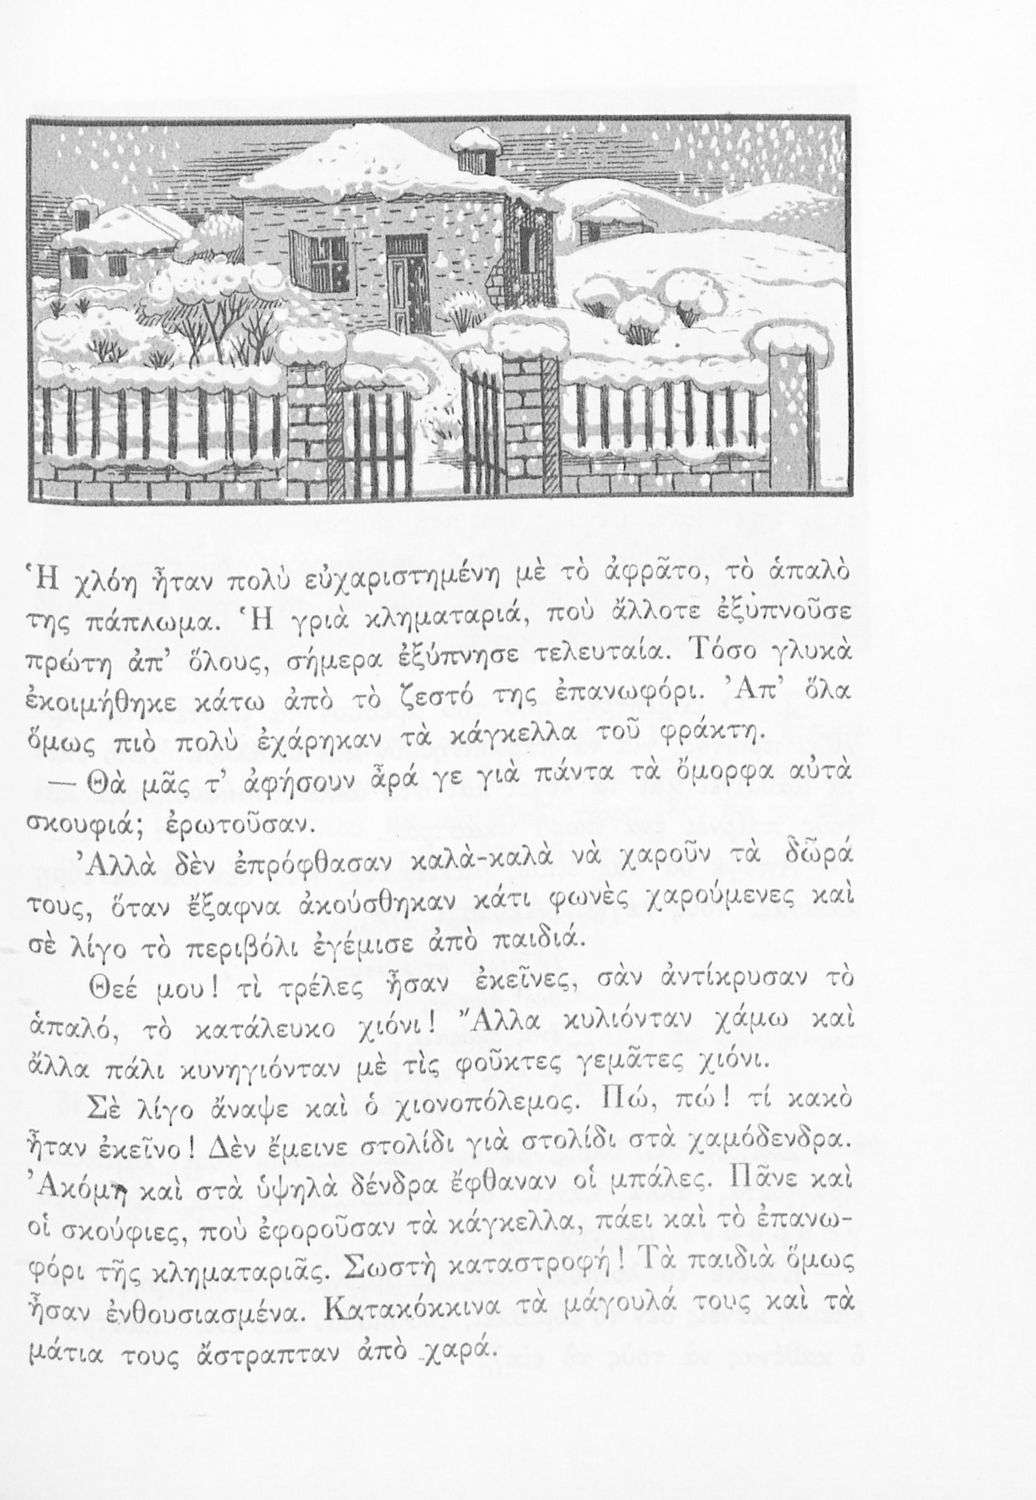 Ἡ χλόη ἦταν πολὺ εὐχαριστημένη μὲ τὸ ἀφρᾶτο, τὸ ἁπαλὸ
της πάπλωμα. Ἡ γριὰ κληματαριά, ποὺ ἄλλοτε ἐξυπνοῦσε
πρώτη ἀπ’ ὅλους, σήμερα ἐξύπνησε τελευταία. Τόσο γλυκὰ
ἐκοιμήθηκε κάτω ἀπὸ τὸ ζεστό της ἐπανωφόρι. Ἀπ’ ὅλα
ὅμως πιὸ πολὺ ἐχάρηκαν τὰ κάγκελλα τοῦ φράκτη.
— Θὰ μᾶς τ’ ἀφήσουν ἆρά γε γιὰ πάντα τὰ ὄμορφα αὐτὰ
σκουφιά; ἐρωτοῦσαν.
Ἀλλὰ δὲν ἐπρόφθασαν καλὰ-καλὰ νὰ χαροῦν τὰ δῶρά
τους, ὅταν ἔξαφνα ἀκούσθηκαν κάτι φωνὲς χαρούμενες καὶ
σὲ λίγο τὸ περιβόλι ἐγέμισε ἀπὸ παιδιά.
Θεέ μου! τὶ τρέλες ἦσαν ἐκεῖνες, σὰν ἀντίκρυσαν τὸ
ἁπαλό, τὸ κατάλευκο χιόνι! Ἄλλα κυλιόνταν χάμω καὶ
ἄλλα πάλι κυνηγιόνταν μὲ τὶς φοῦκτες γεμᾶτες χιόνι.
Σὲ λίγο ἄναψε καὶ ὁ χιονοπόλεμος. Πώ, πώ! τί κακὸ
ἦταν ἐκεῖνο! Δὲν ἔμεινε στολίδι γιὰ στολίδι στὰ χαμόδενδρα.
Ἀκόμη καὶ στὰ ὑψηλὰ δένδρα ἔφθαναν οἱ μπάλες. Πᾶνε καὶ
οἱ σκούφιες, ποὺ ἐφοροῦσαν τὰ κάγκελλα, πάει καὶ τὸ ἐπανω-
φόρι τῆς κληματαριᾶς. Σωστὴ καταστροφή! Τὰ παιδιὰ ὅμως
ἦσαν ἐνθουσιασμένα. Κατακόκκινα τὰ μάγουλά τους καὶ τὰ
μάτια τους ἄστραπταν ἀπὸ χαρά.